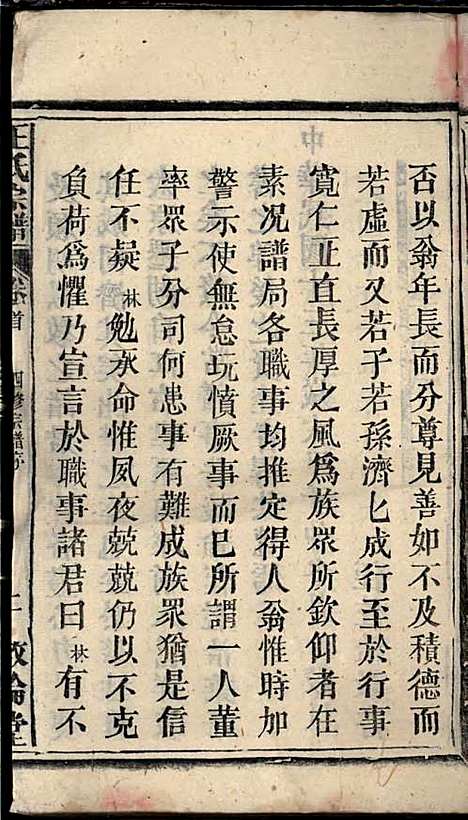 否以翁年長而分尊見善如不及積德而
若虛而又若子若孫濟匕成行至於行事
寬仁正直長厚之風爲族眾所欽仰者在
素况譜局各職事均推定得人翁惟時加
警示使無怠玩憤厥事而已所謂一人董
率眾子分司何患事有難成族眾猶是信
任不疑林勉承命惟夙夜兢兢仍以不克
負荷爲懼乃宣言於職事諸君曰林有不
王氏宗譜 卷首 四修宗譜序 二 敦倫堂